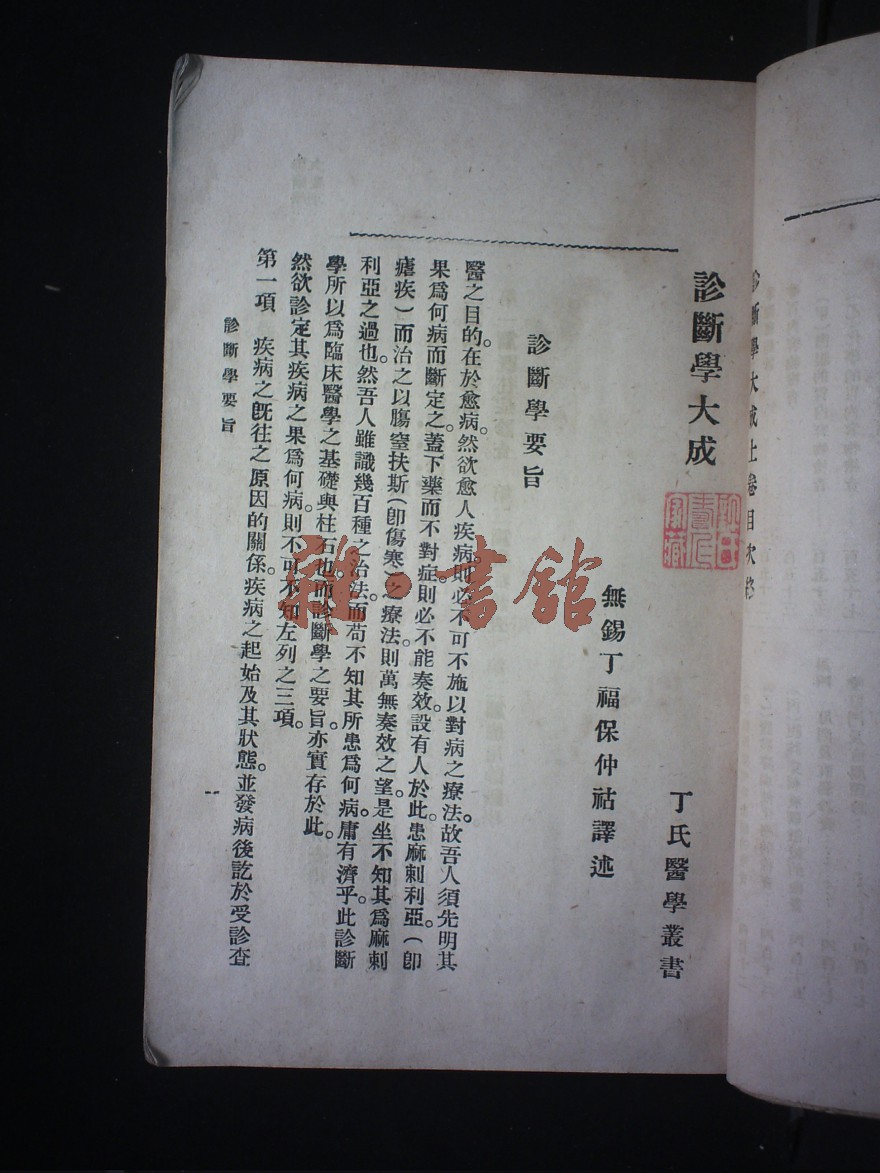 診斷學大成
丁氏醫學叢書
無錫丁福保仲祜譯述
診斷學要旨
醫之目的。在於愈病。然欲愈人疾病。則必不可不施以對病之療法。故吾人須先明其
果爲何病而斷定之。蓋下藥而不對症。則必不能奏效。設有人於此。患麻剌利亞。(卽
瘧疾)而治之以膓窒扶斯(卽傷寒)之療法。則萬無奏效之望。是坐不知其爲麻剌
利亞之過也。然吾人雖識幾百種之治法。而苟不知其所患爲何病。庸有濟乎。此診斷
學所以爲臨床醫學之基礎與柱石也。而診斷學之要旨。亦實存於此。
然欲診定其疾病之果爲何病。則不可不知左列之三項。
第一項 疾病之旣往之原因的關係。疾病之起始及其狀態。並發病後訖於受診查
診斷學要旨
一
診斷學大成上卷目次終
雜·書館